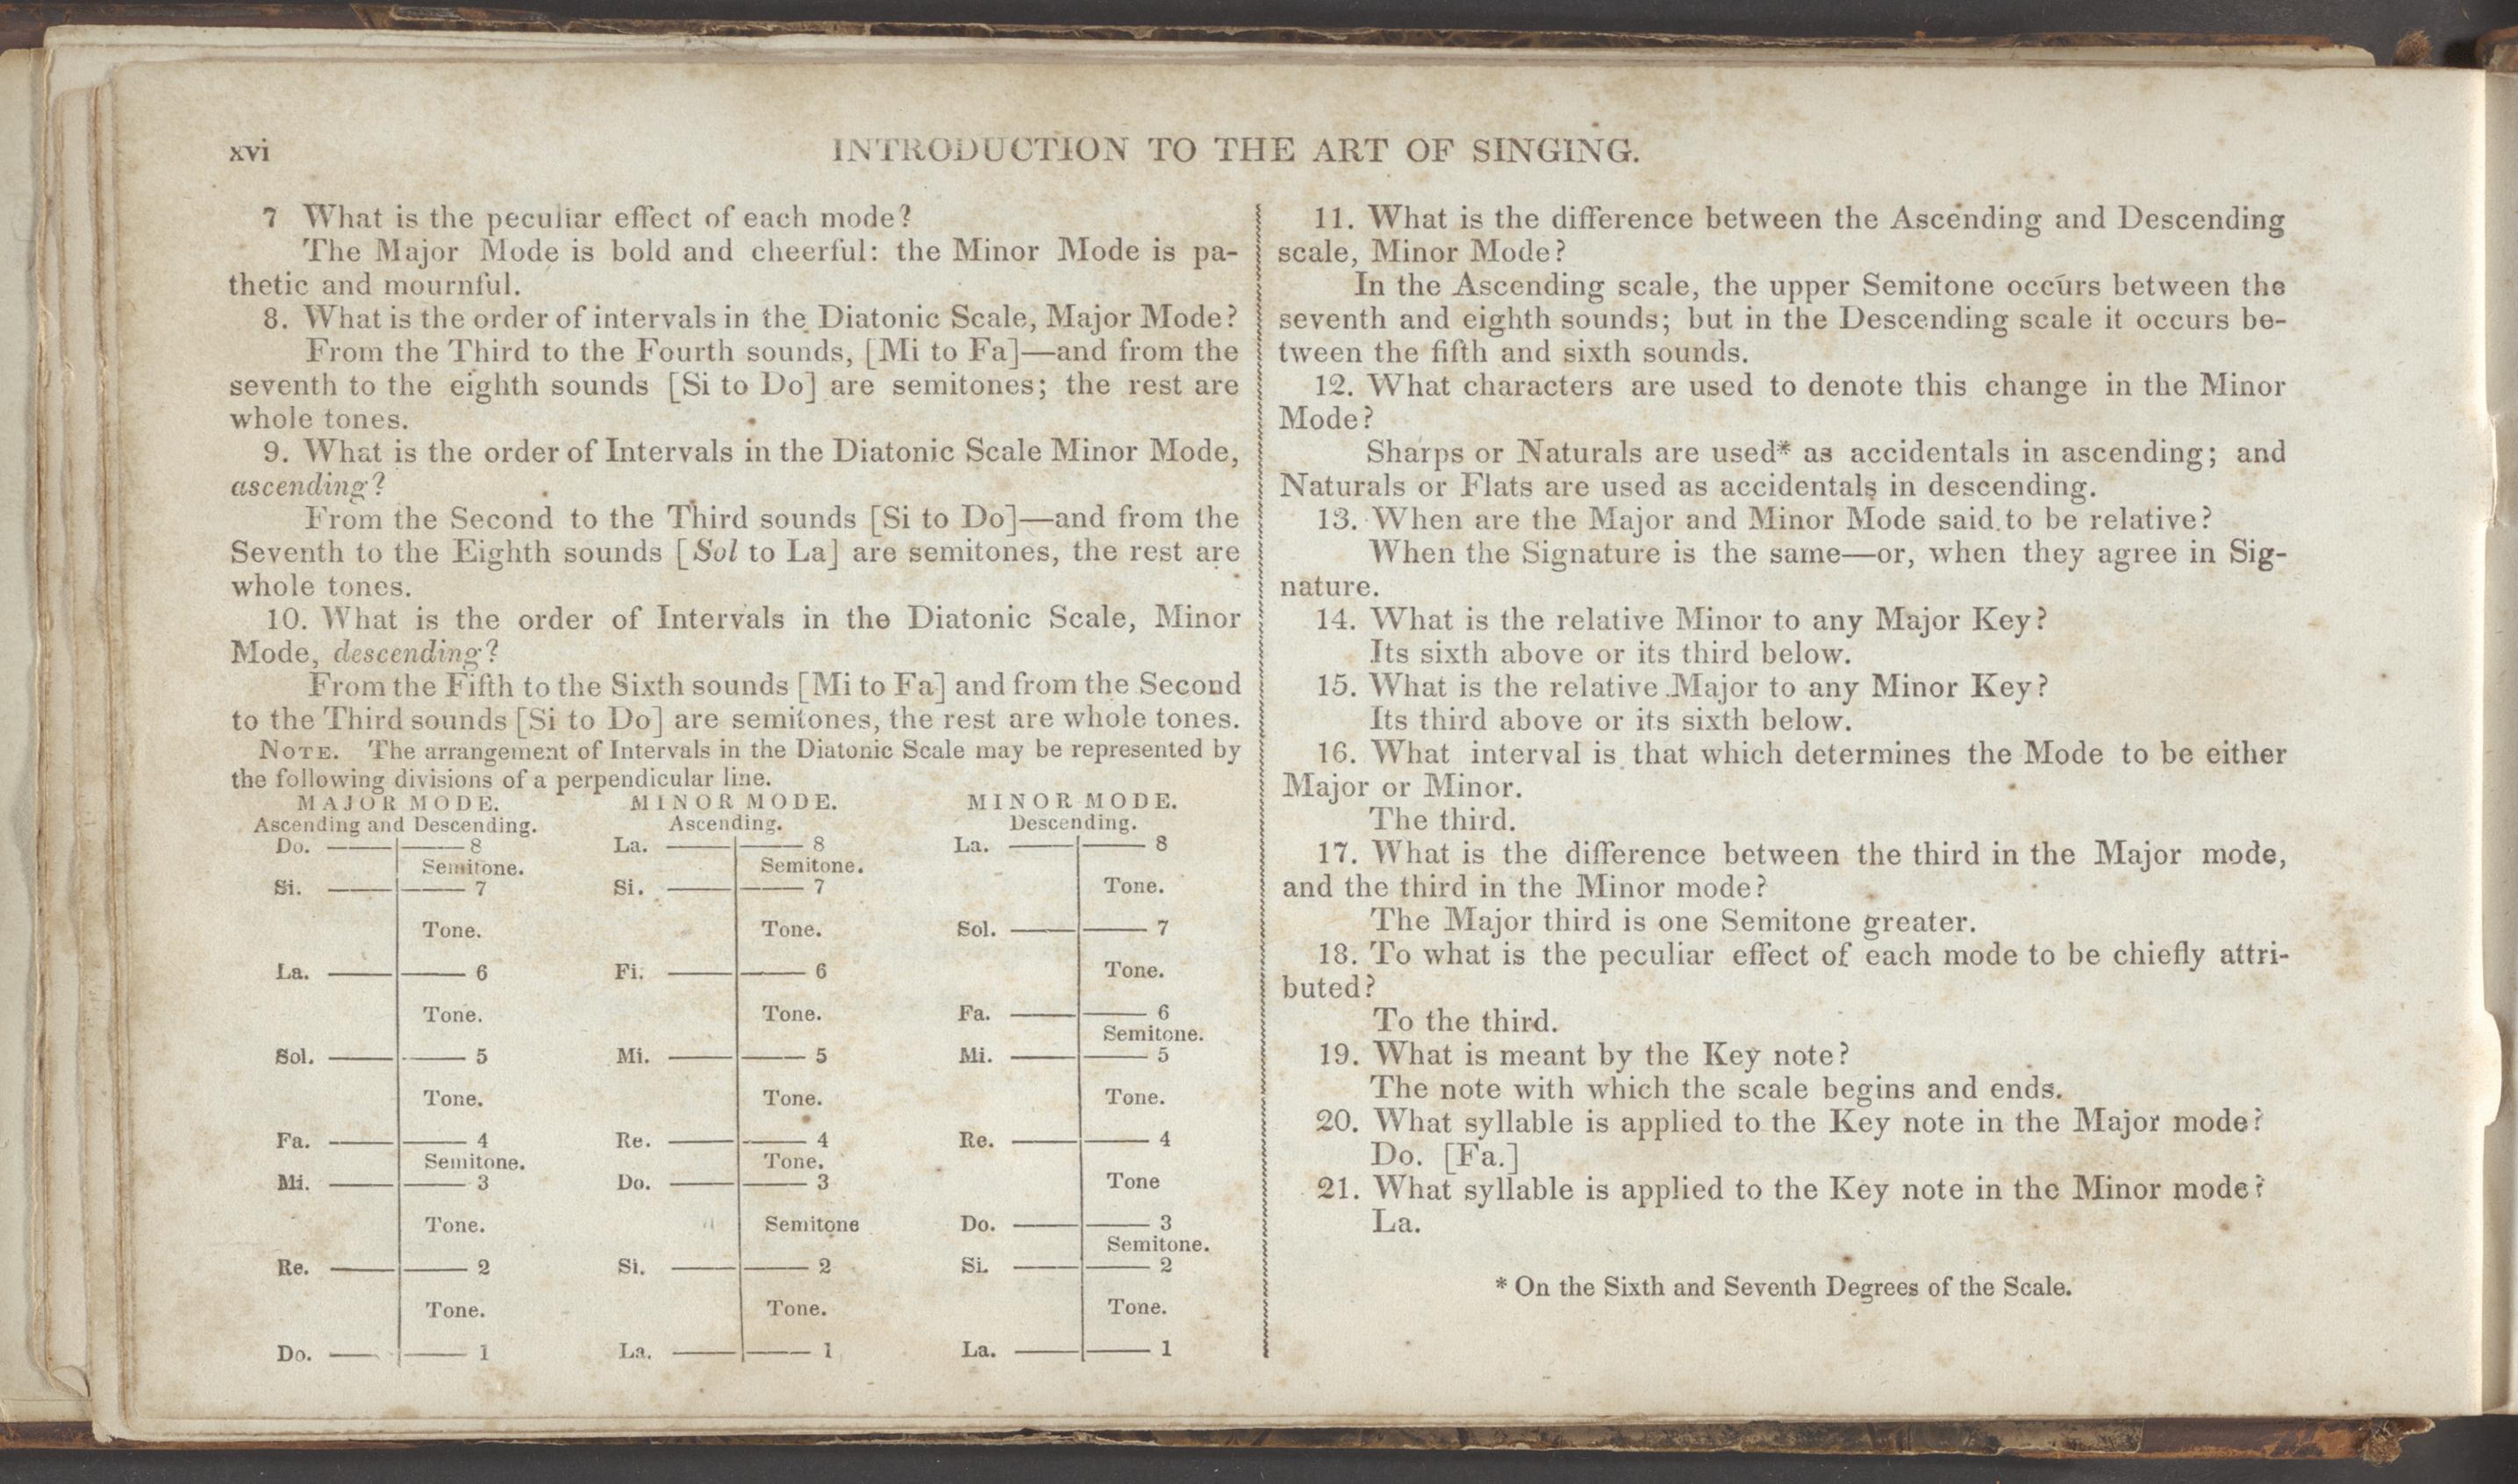 xvi
INTRODUCTION TO THE ART OF SINGING.
7 What is the peculiar effect of each mode?
The Major Mode is bold and cheerful: the Minor Mode is pa-
thetic and mournful.
8. What is the order of intervals in the Diatonic Scale, Major Mode?
From the Third to the Fourth sounds, [Mi to Fa]—and from the
seventh to the eighth sounds [Si to Do] are semitones; the rest are
whole tones.
9. What is the order of Intervals in the Diatonic Scale Minor Mode,
ascending?
From the Second to the Third sounds [Si to Do]—and from the
Seventh to the Eighth sounds [Sol to La] are semitones, the rest are
whole tones.
10. What is the order of Intervals in the Diatonic Scale, Minor
Mode, descending?
From the Fifth to the Sixth sounds [Mi to Fa] and from the Second
to the Third sounds [Si to Do] are semitones, the rest are whole tones.
NOTE. The arrangement of Intervals in the Diatonic Scale may be represented by
the following divisions of a perpendicular line.
MAJOR MODE.
Ascending and Descending.
Do. 8
Semitone.
Si. 7
Tone.
La. 6
Tone.
Sol. 5
Tone.
Fa. 4
Semitone.
Mi. 3
Tone.
Re. 2
Tone.
Do. 1
MINOR MODE.
Ascending.
La. 8
Semitone.
Si. 7
Tone.
Fi. 6
Tone.
Mi. 5
Tone.
Re. 4
Tone.
Do. 3
Semitone
Si. 2
Tone.
La. 1
MINOR MODE.
Descending.
La. 8
Tone.
Sol. 7
Tone.
Fa. 6
Semitone.
Mi. 5
Tone.
Re. 4
Tone
Do. 3
Semitone.
Si. 2
Tone.
La. 1
11. What is the difference between the Ascending and Descending
scale, Minor Mode?
In the Ascending scale, the upper Semitone occurs between the
seventh and eighth sounds; but in the Descending scale it occurs be-
tween the fifth and sixth sounds.
12. What characters are used to denote this change in the Minor
Mode?
Sharps or Naturals are used* as accidentals in ascending; and
Naturals or Flats are used as accidentals in descending.
13. When are the Major and Minor Mode said to be relative?
When the Signature is the same—or, when they agree in Sig-
nature.
14. What is the relative Minor to any Major Key?
Its sixth above or its third below.
15. What is the relative Major to any Minor Key?
Its third above or its sixth below.
16. What interval is that which determines the Mode to be either
Major or Minor.
The third.
17. What is the difference between the third in the Major mode,
and the third in the Minor mode?
The Major third is one Semitone greater.
18. To what is the peculiar effect of each mode to be chiefly attri-
buted?
To the third.
19. What is meant by the Key note?
The note with which the scale begins and ends.
20. What syllable is applied to the Key note in the Major mode?
Do. [Fa.]
21. What syllable is applied to the Key note in the Minor mode?
La.
* On the Sixth and Seventh Degrees of the Scale.